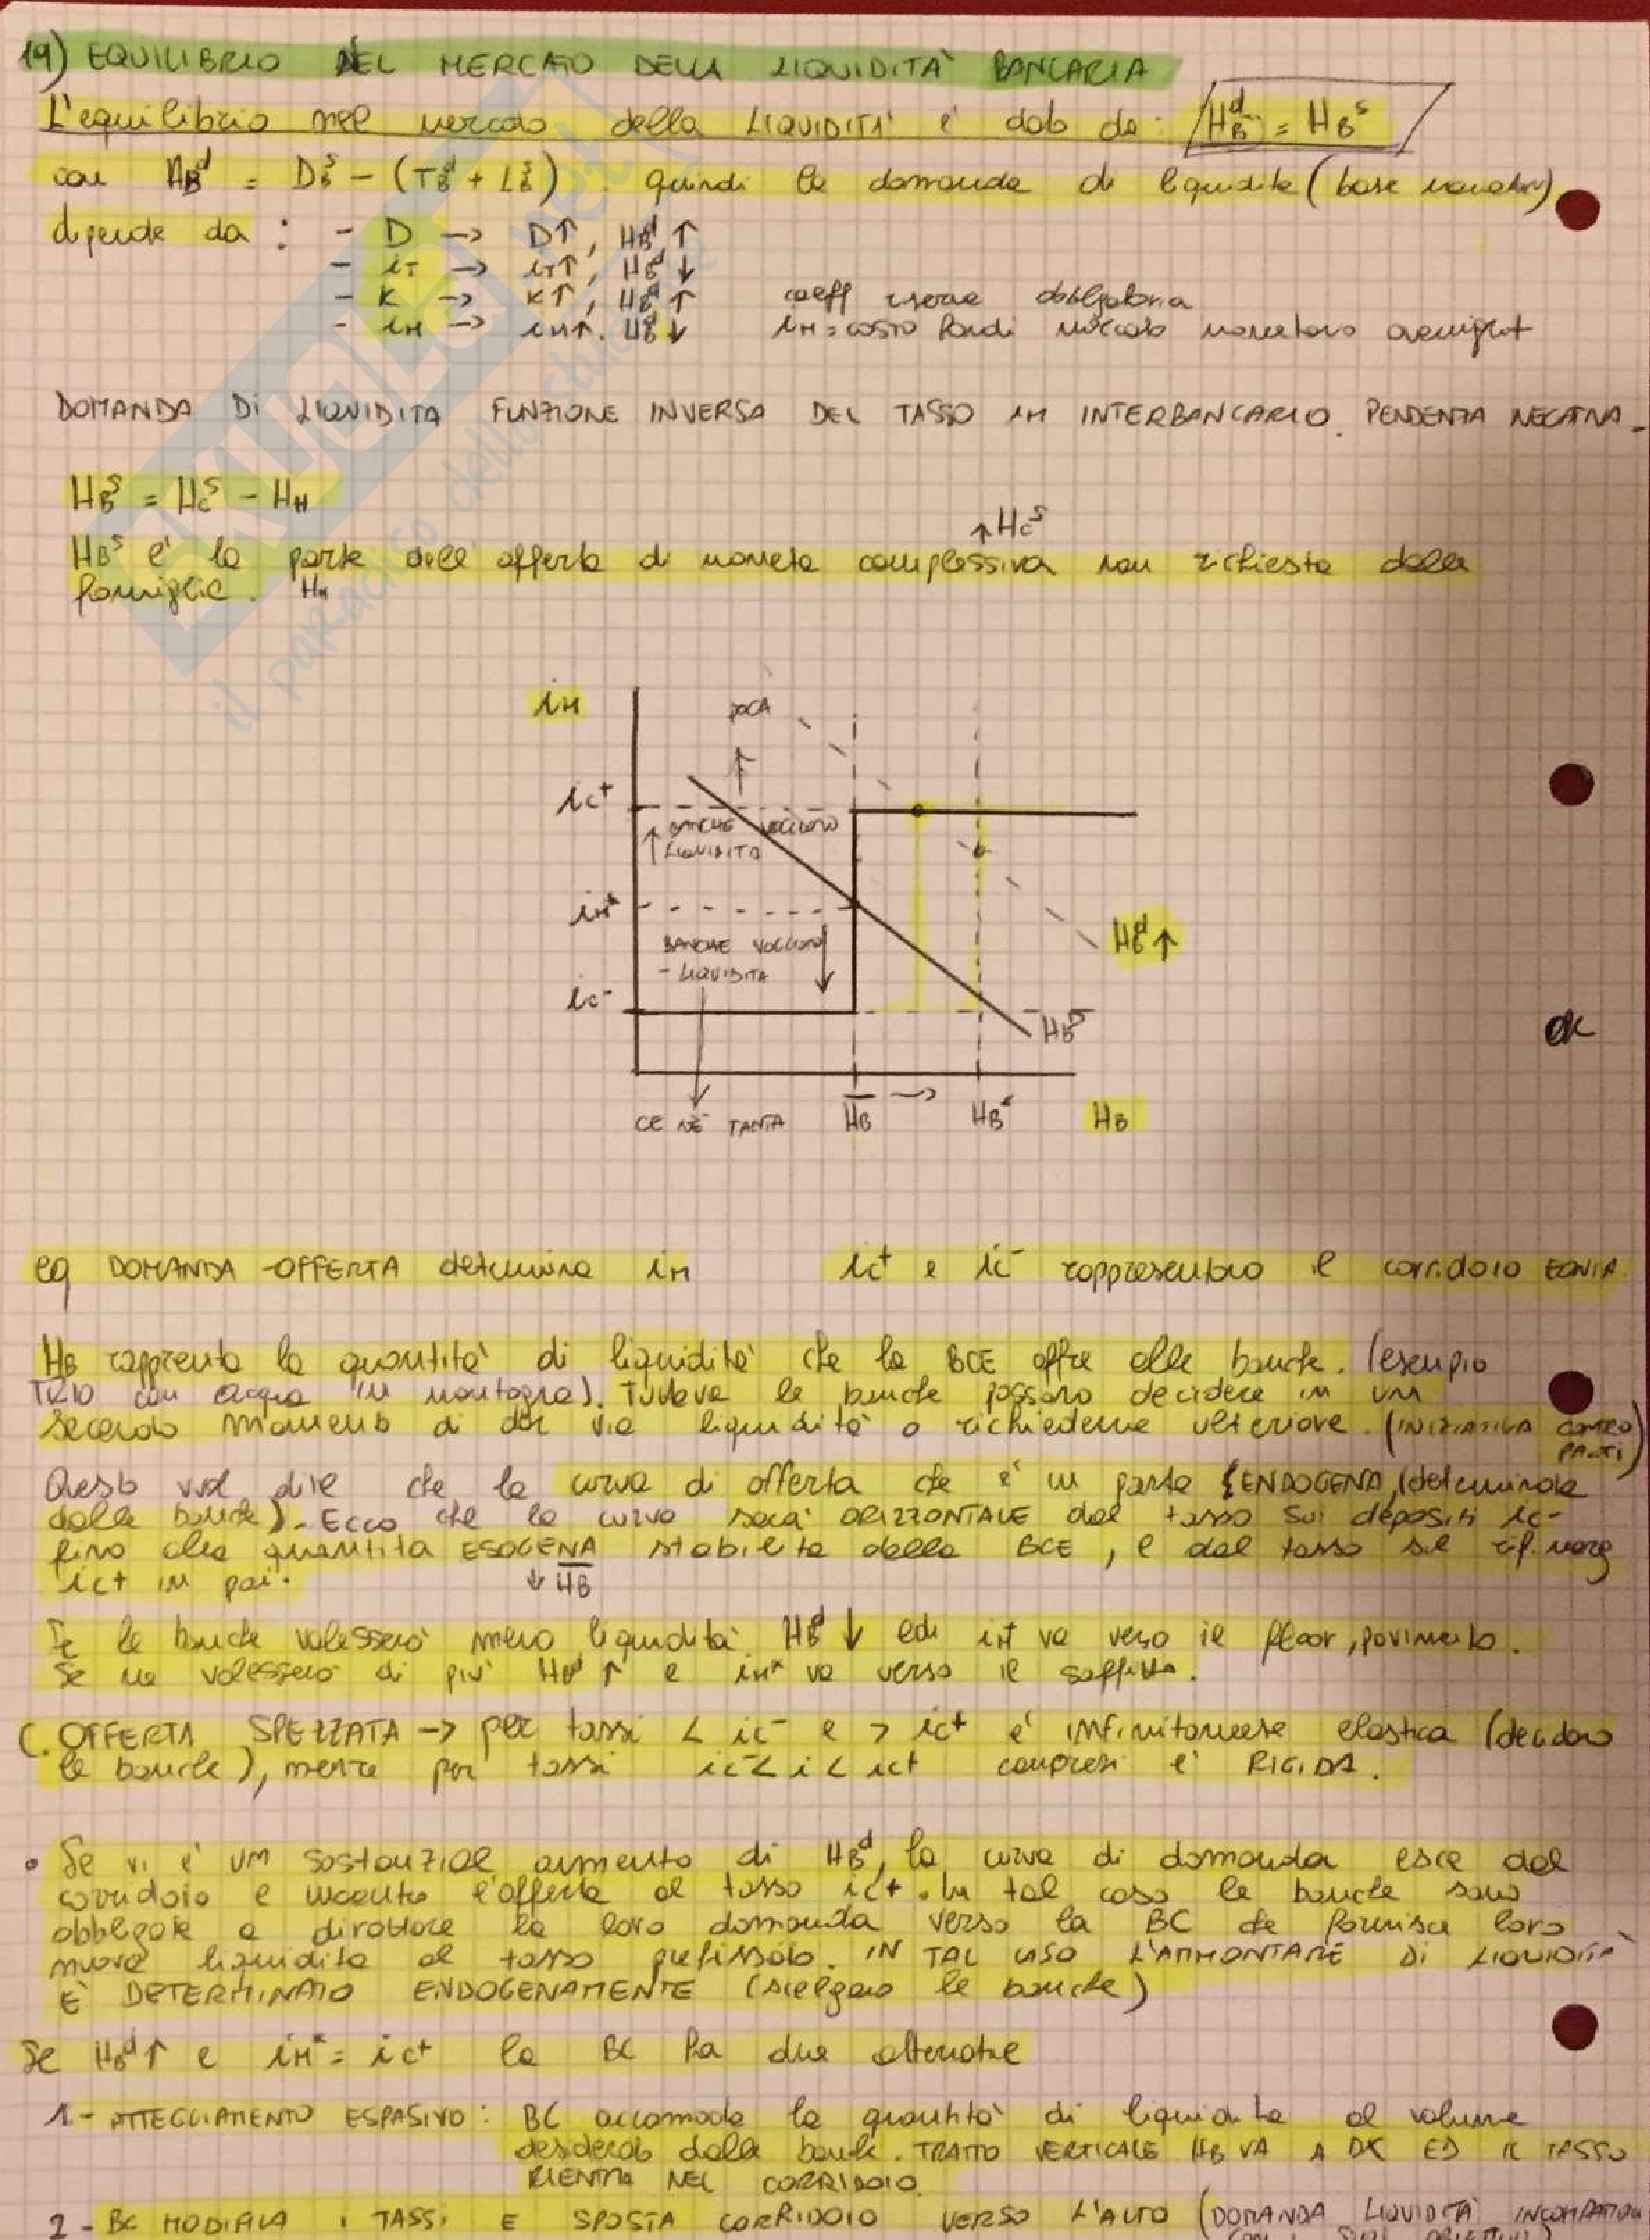 19) EQUILIBRIO NEL MERCATO DELLA LIQUIDITÀ BANCARIA
L'equilibrio nel mercato della LIQUIDITA' è dato da: HBᵈ = HBˢ
con HBᵈ = DBˢ - (TBᵈ + LBˢ). quindi la domanda di liquidità (base monetaria)
dipende da : - D → D↑, HBᵈ ↑
- iT → iT↑, HBᵈ ↓
- K → K↑, HBᵈ ↑ coeff riserva obbligatoria
- iH → iH↑. HBᵈ ↓ iH = costo fondi mercato monetario overnight
DOMANDA DI LIQUIDITA FUNZIONE INVERSA DEL TASSO iH INTERBANCARIO. PENDENZA NEGATIVA.
HBˢ = HCˢ - HH
↑ HCˢ
HBˢ è la parte dell offerta di moneta complessiva non richiesta dalle
famiglie. HH
iH
POCA
iC⁺
↑ BANCHE VOGLIONO
LIQUIDITÀ
iH*
BANCHE VOGLIONO
- LIQUIDITÀ
HBᵈ ↑
iC⁻
HBᵈ
CE NÈ TANTA
HB → HB' HB
eq DOMANDA -OFFERTA determina iH iC⁺ e iC⁻ rappresentano il corridoio EONIA
HB rappresenta la quantità di liquidità che la BCE offre alle banche. (esempio
con acqua in montagna). Tuttavia le banche possono decidere in un
secondo momento di dar via liquidità o richiederne ulteriore. (INIZIATIVA CONTRO
PARTI)
Questo vuol dire che la curva di offerta che è in parte ENDOGENA, (determinata
dalle banche). Ecco che la curva sarà ORIZZONTALE dal tasso sui depositi iC-
fino alla quantità ESOGENA stabilita dalla BCE, e dal tasso sul rif. marg
iC+ in poi. ↓ HB
Se le banche volessero meno liquidità HBᵈ ↓ ed iH* va verso il floor, pavimento.
Se ne volessero di più HBᵈ ↑ e iH* va verso il soffitto.
C. OFFERTA SPEZZATA → per tassi < iC⁻ e > iC⁺ è infinitamente elastica (decidono
le banche), mentre per tassi iC⁻ < i < iC+ compresi è RIGIDA.
• Se vi è un sostanzial aumento di HBᵈ, la curva di domanda esce dal
corridoio e incontra l'offerta al tasso iC+. In tal caso le banche sono
obbligate a dirottare la loro domanda verso la BC che fornisce loro
nuova liquidità al tasso prefissato. IN TAL CASO L'AMMONTARE DI LIQUIDITÀ
È DETERMINATO ENDOGENAMENTE (scelgono le banche)
Se HBᵈ↑ e iH* = iC+ la BC ha due alternative
1- ATTEGGIAMENTO ESPASIVO: BC accomoda la quantità di liquidità al volume
desiderato dalle banche. TRATTO VERTICALE HB VA A DX ED IL TASSO
RIENTRA NEL CORRIDOIO.
2- BC MODIFICA I TASSI E SPOSTA CORRIDOIO VERSO L'ALTO (DOMANDA LIQUIDITÀ